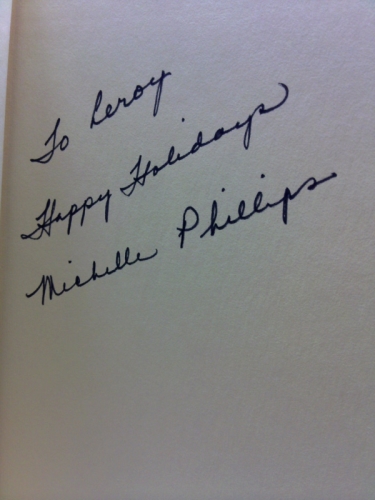 To Leroy
Happy Holidays
Michelle Phillips